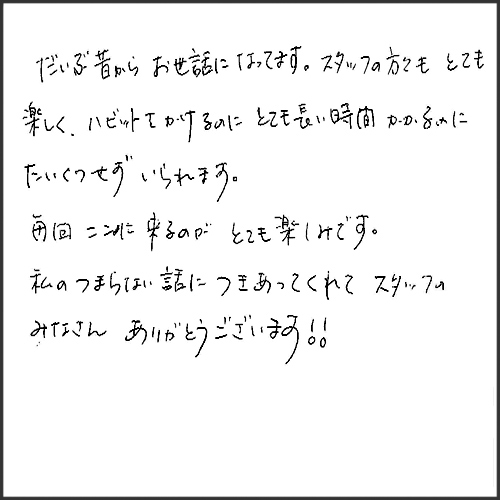 だいぶ昔から お世話になってます。スタッフの方々も とても
楽しく、ハビットをかけるのに とても長い時間 かかるのに
たいくつせず いられます。
毎回 ここに来るのが とても楽しみです。
私のつまらない話に つきあってくれて スタッフの
みなさん ありがとうございます!!